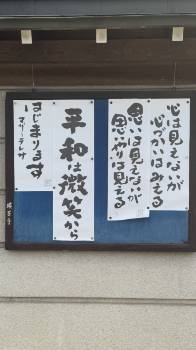 心は見えないが
心づかいはみえる
思いは見えないが
思いやりは見える
平和は微笑から
はじまります
マザーテレサ